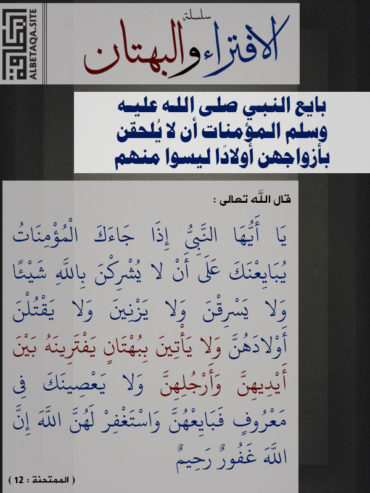 البطاقة
ALBETAQA.SITE
سلسلة
الافتراء والبهتان
بايع النبي صلى الله عليه
وسلم المؤمنات أن لا يُلحقن
بأزواجهن أولادًا ليسوا منهم
قال اللَّه تعالى :
يَا أَيُّهَا النَّبِيُّ إِذَا جَاءَكَ الْمُؤْمِنَاتُ
يُبَايِعْنَكَ عَلَى أَنْ لا يُشْرِكْنَ بِاللَّهِ شَيْئًا
وَلا يَسْرِقْنَ وَلا يَزْنِينَ وَلا يَقْتُلْنَ
أَوْلادَهُنَّ وَلا يَأْتِينَ بِبُهْتَانٍ يَفْتَرِينَهُ بَيْنَ
أَيْدِيهِنَّ وَأَرْجُلِهِنَّ وَلا يَعْصِينَكَ فِي
مَعْرُوفٍ فَبَايِعْهُنَّ وَاسْتَغْفِرْ لَهُنَّ اللَّهَ إِنَّ
اللَّهَ غَفُورٌ رَحِيمٌ
( الممتحنة : 12 )